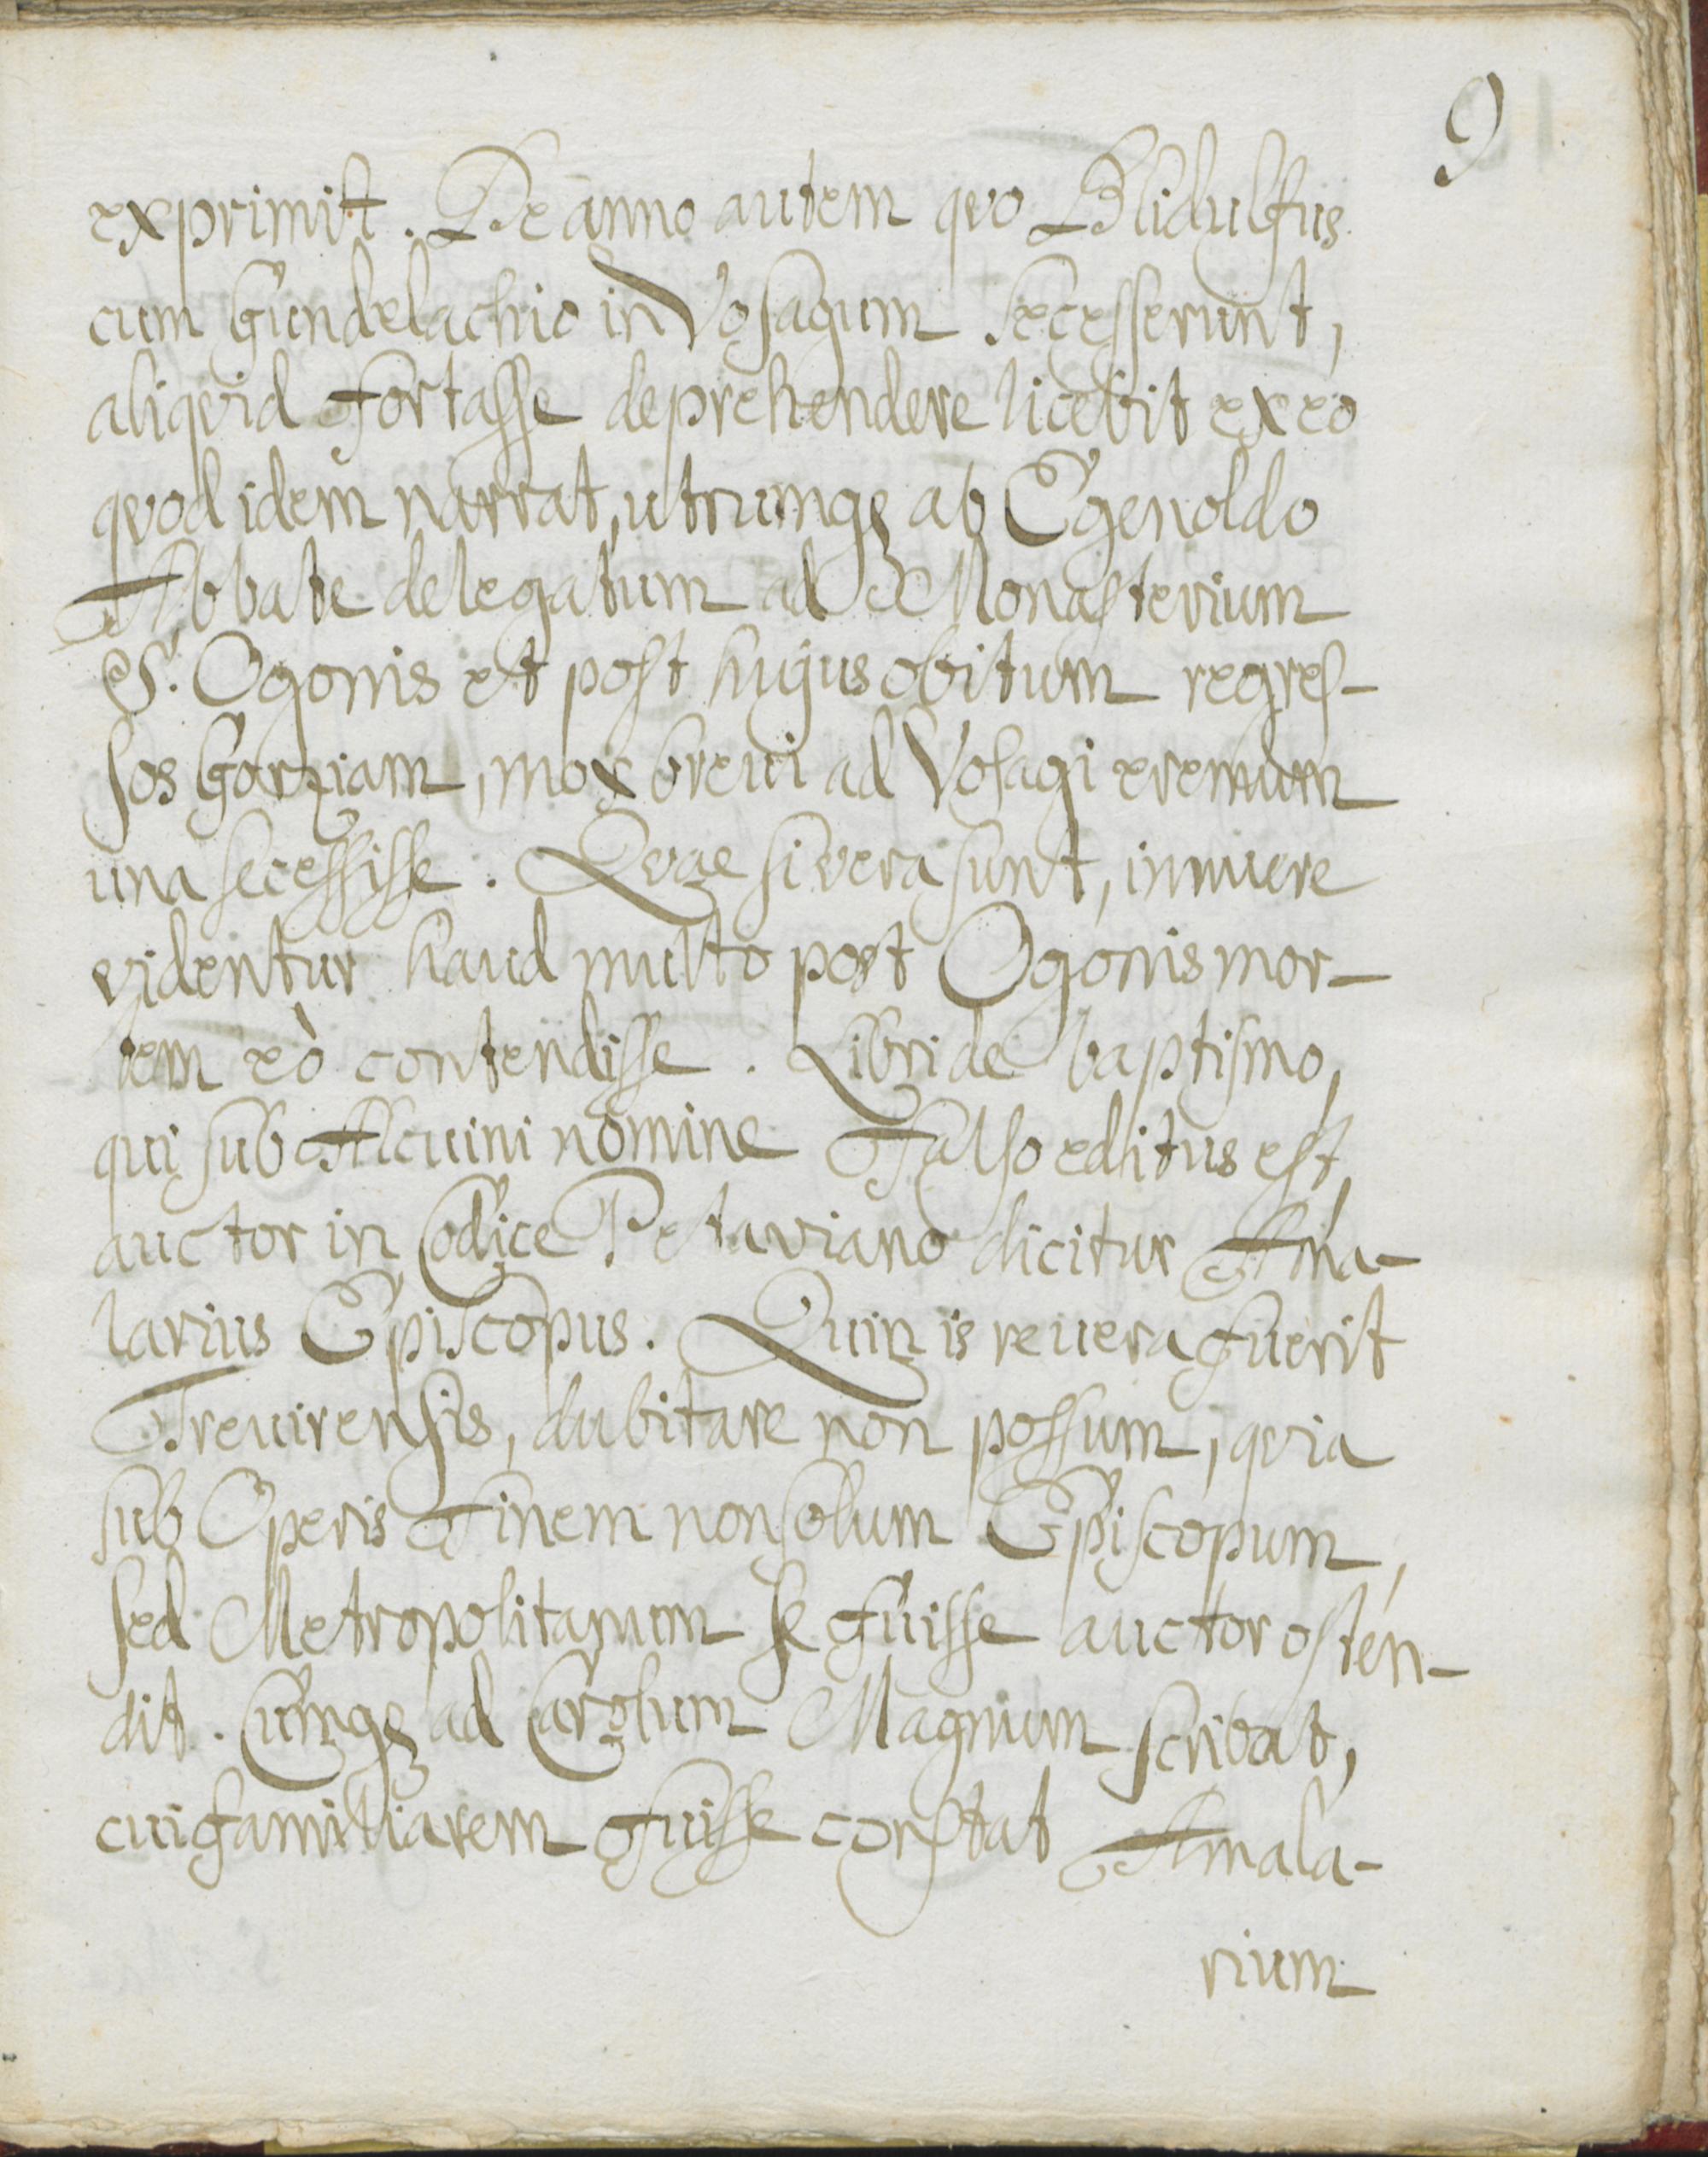 9
exprimit. De anno autem quo Blidulfus
cum Gundelachio in Vosagum secesserunt,
aliquid fortasse deprehendere licebit ex eo
quod idem narrat, utrumqꝫ ab Egenoldo
Abbate delegatum ad Monasterium
S. Ogonis et post hujus obitum regres-
sos Gorziam, mox breui ad Vosagi eremum
una secessisse. Quae si vera sunt, innuere
videntur haud multo post Ogonis mor-
tem eò contendisse. Libri de baptismo,
qui sub Alcuini nomine falso editus est,
auctor in Codice Petaviano dicitur Ama-
larius Episcopus. Quin is reuera fuerit
Treuirensis, dubitare non possum, quia
sub Operis finem non solum Episcopum,
sed Metropolitanum se fuisse auctor osten-
dit. Cumqꝫ ad Carolum Magnum scribat,
cui familiarem fuisse constat Amala-
rium